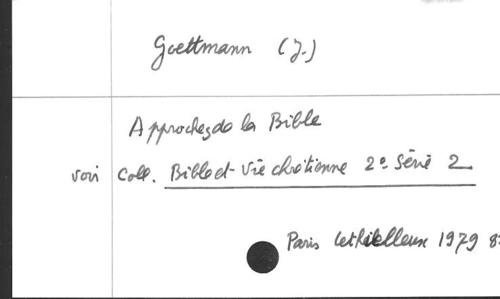 Goettmann (J.)
Approches de la Bible
voir Coll. Bible et Vie chrétienne 2e Série 2
Paris Lethielleux 1979 8